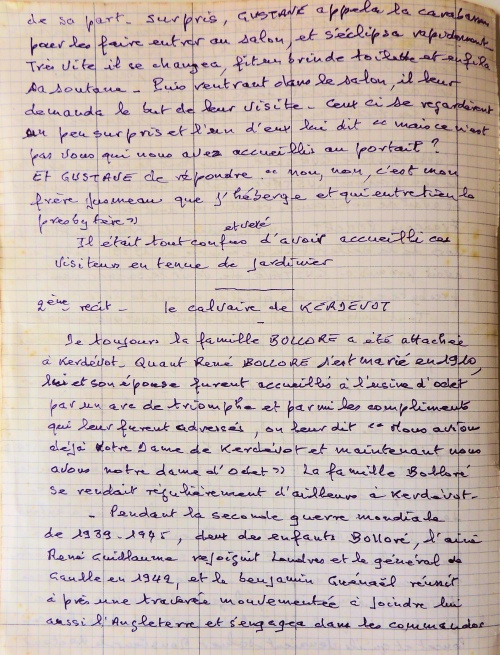 de sa part. Surpris, GUSTAVE appela la carabassen
pour les faire entrer au salon, et s'éclipsa rapidement
Très vite il se changea, fit un brin de toilette et enfila
sa soutane. Puis rentrant dans le salon, il leur
demanda le but de leur visite. Ceux ci se regardèrent
un peu surpris et l'un d'eux lui dit "mais ce n'est
pas vous qui nous avez accueillis au portail?
Et GUSTAVE de répondre "non, non, c'est mon
frère jumeau que j'héberge et qui entretien le
presbytère"
et vexé
Il était tout confus d'avoir accueilli ces
visiteurs en tenue de jardinier
2ème récit - le calvaire de KERDEVOT
De toujours la famille BOLLORE a été attachée
à Kerdévot. Quant René BOLLORE s'est marié en 1910,
lui et son épouse furent accueillis à l'usine d'odet
par un arc de triomphe et parmi les compliments
qui leur furent adressés, on leur dit "Nous avions
déjà Notre Dame de Kerdévot et maintenant nous
avons notre dame d'Odet" La famille Bolloré
se rendait régulièrement d'ailleurs à Kerdévot.
- Pendant la seconde guerre mondiale
de 1939-1945, deux des enfants Bolloré, l'ainé
René Guillaume rejoignit Londres et le général de
Gaulle en 1942, et le benjamin Gwenaël réussit
à près une traversée mouvementée à joindre lui
aussi l'Angleterre et s'engagea dans les commandos